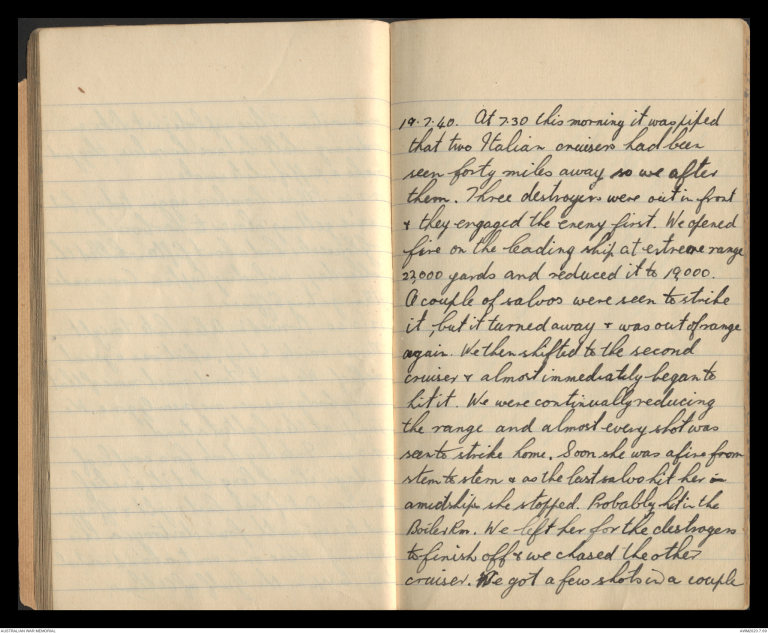 19.7.40. At 7.30 this morning it was piped
that two Italian cruisers had been
seen forty miles away so we after
them. Three destroyers were out in front
& they engaged the enemy first. We opened
fire on the leading ship at extreme range
23,000 yards and reduced it to 19,000.
A couple of salvos were seen to strike
it, but it turned away & was out of range
again. We then shifted to the second
cruiser & almost immediately began to
hit it. We were continually reducing
the range and almost every shot was
seen to strike home. Soon she was afire from
stem to stern & as the last salvo hit her in
amidships she stopped. Probably hit in the
Boiler Rm. We left her for the destroyers
to finish off & we chased the other
cruiser. We got a few shots in a couple
AUSTRALIAN WAR MEMORIAL